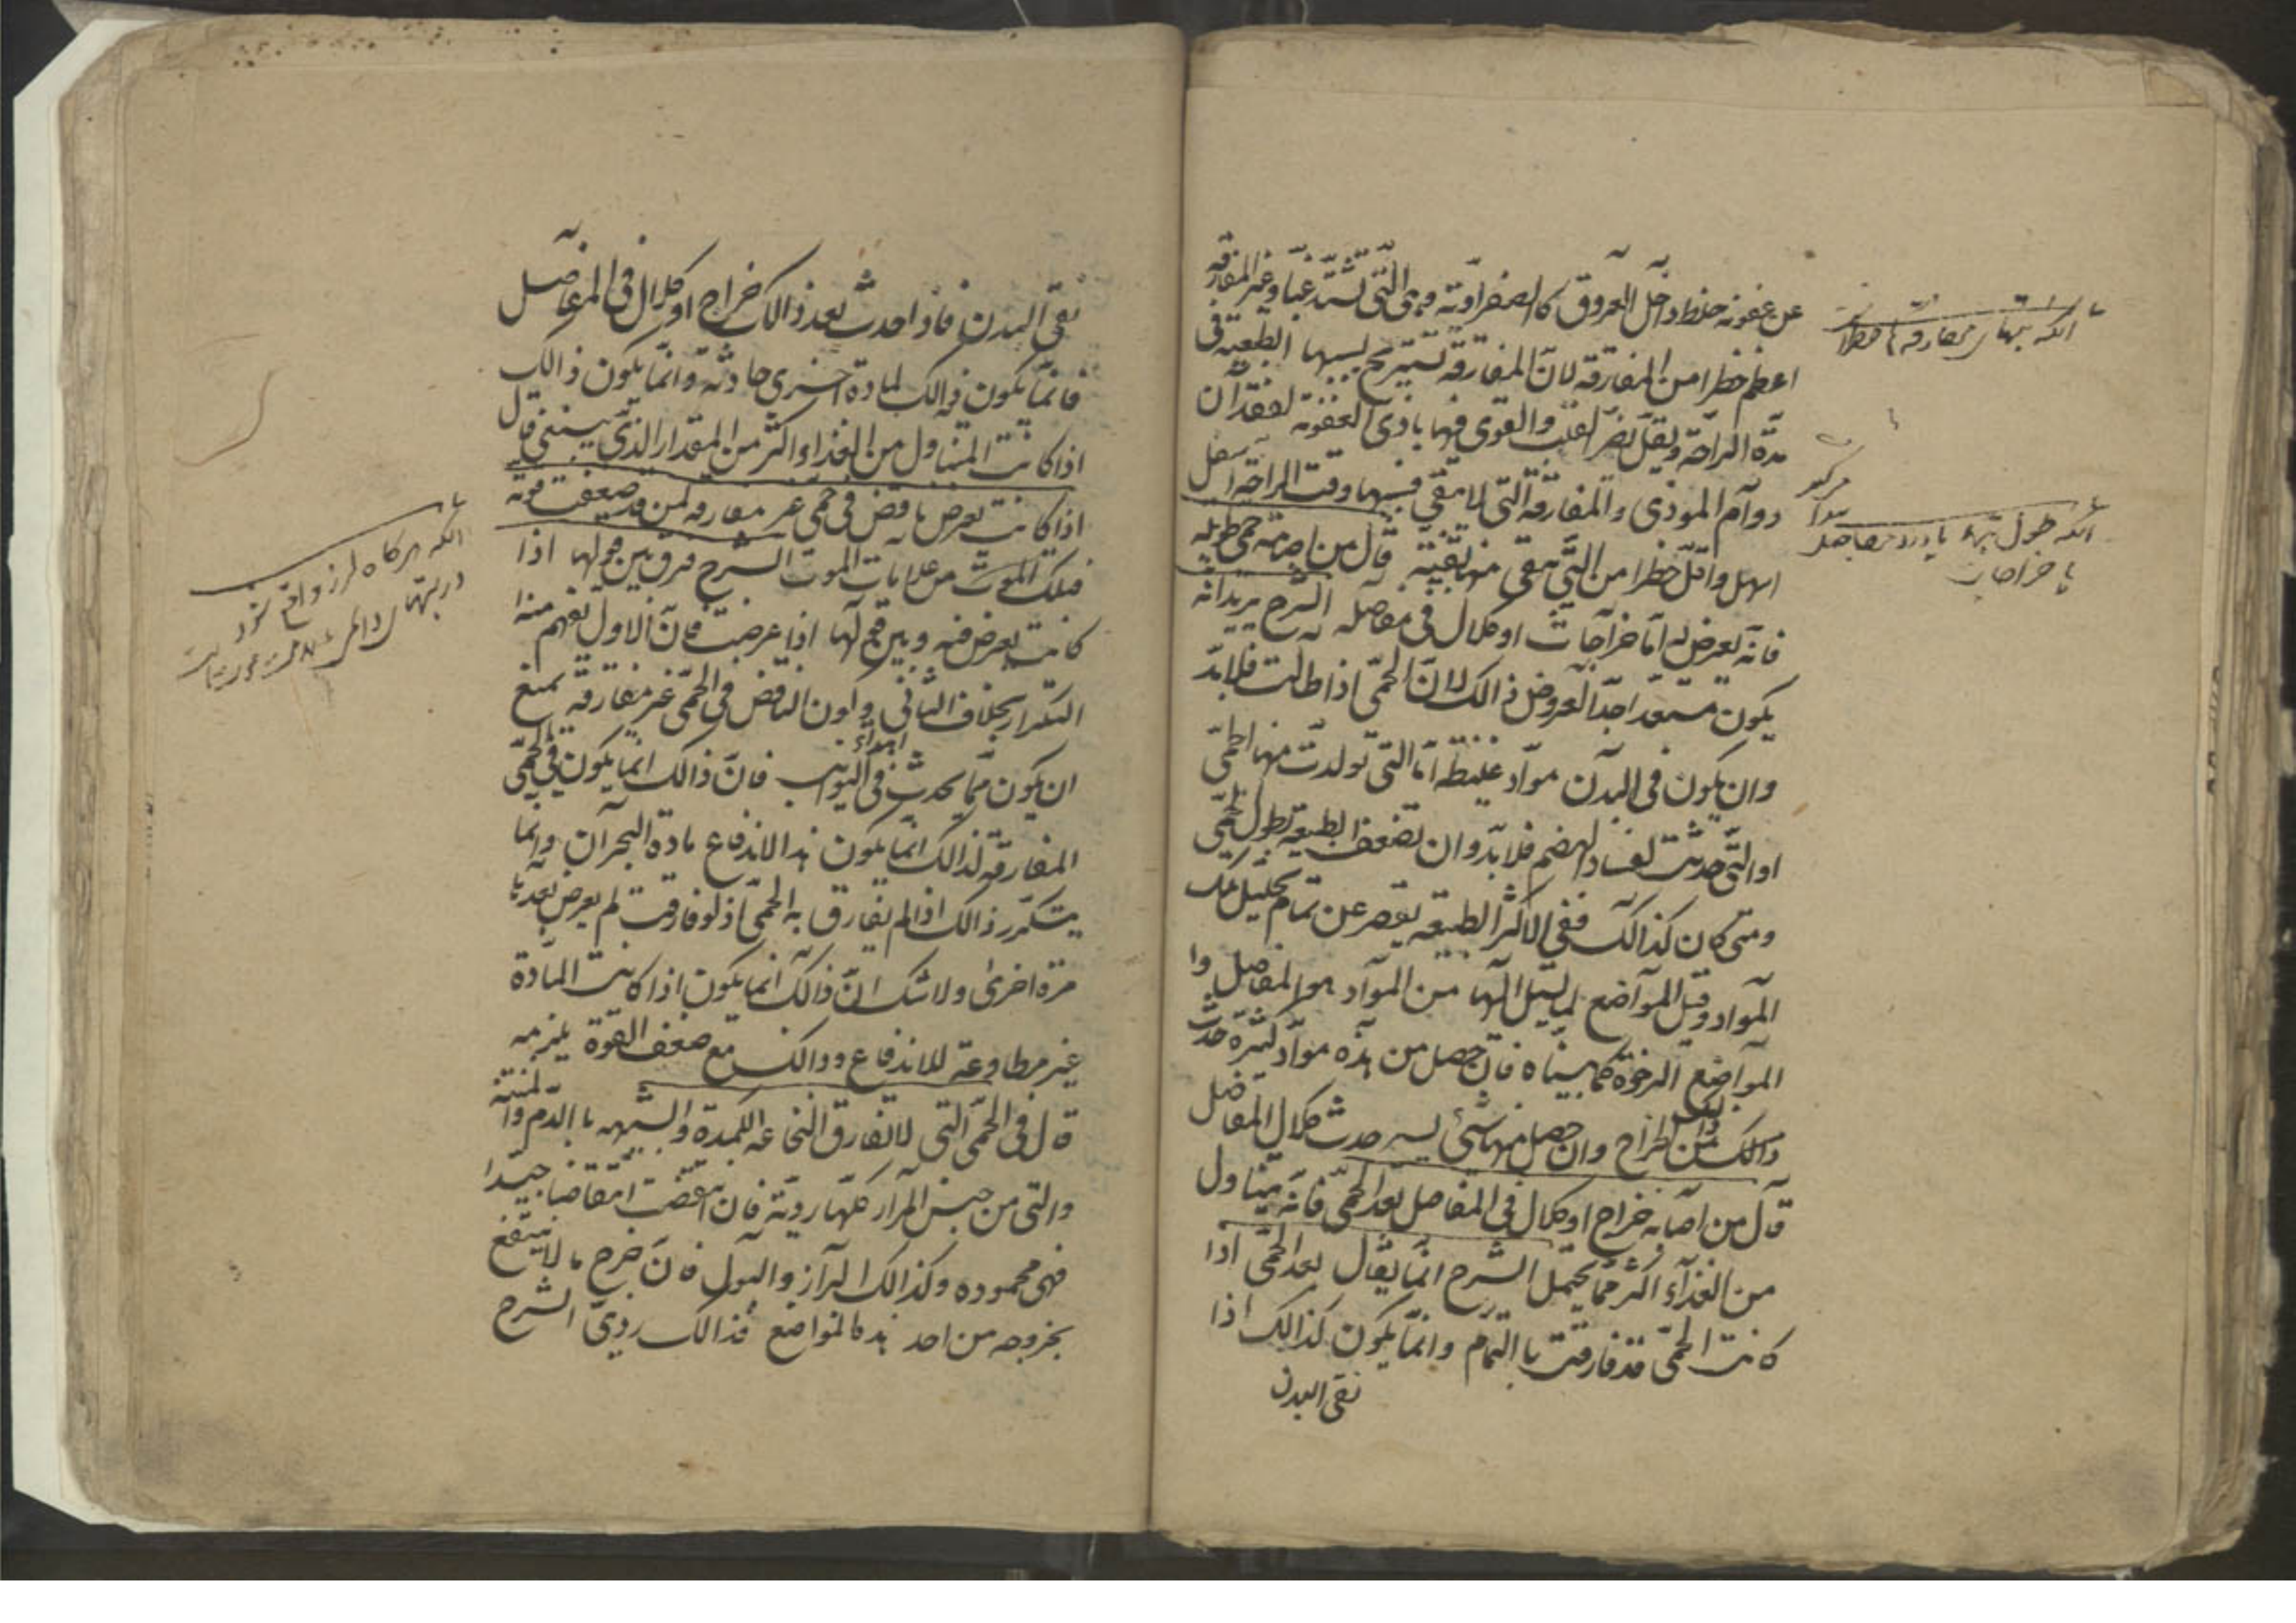 عن عفونة خلط داخل العروق كالصفراوية وهى التى تشتد غبا وغير المفارقة
اعظم خطرا من المفارقة لان المفارقة تستريح بسببها الطبيعة فى
مدة الراحة ويقل تضرر القلب والقوى فيها باذى العفونة لفقدان
دوام الموذى والمفارقة التى لا تبقى فيها وقت الراحة
اسهل واقل خطرا من التى تبقى منها بقية قال من اصابته حمى طويلة
فانه يعرض له اما خراجات او كلال فى مفاصله الشرح يريد انه
يكون مستعدا جدا لعروض ذالك لان الحمى اذا طالت فلا بد
وان يكون فى البدن مواد غليظة اما التى تولدت منها الحمى
او التى حدثت لفساد الهضم فلا بد وان تضعف الطبيعة بطول الحمى
ومتى كان كذالك ففى الاكثر الطبيعة تقصر عن تمام تحليل تلك
المواد وقبل المواضع لما يسيل اليها من المواد هو المفاصل وا
المواضع الرخوة كما بيناه فان حصل من هذه مواد كثيرة حدث
ذالك من الخراج وان حصل منها شئ يسير حدث كلال المفاصل
قال من اصابه خراج او كلال فى المفاصل بعد الحمى فانه يتناول
من الغذاء اكثر مما يحتمل الشرح انما يقال بعد الحمى اذا
كانت الحمى قد فارقت باالتمام وانما يكون كذالك اذا
نقى البدن
انكه تبهاى مفارقه
انكه طول تبها با درد مفاصل
يا خراجات
نقى البدن فاذا حدث بعد ذالك خراج او كلال فى المفاصل
فانما يكون ذالك لمادة اخرى حادثة وانما يكون ذالك
اذا كانت المتناول من الغذاء اكثر من المقدار الذى ينبغى قال
اذا كانت يعرض نافض فى حمى غير مفارقة لمن قد ضعفت قوته
فتلك الموت من علامات الموت الشرح فرق بين قولها اذا
كانت يعرض فيه وبين قولها اذا عرضت فان الاول يفهم منه
التكرار بخلاف الثانى وكون النافض فى الحمى غير مفارقة يمنع
ان يكون مما يحدث فى ابتداء النوايب فان ذالك انما يكون فى الحمى
المفارقة لذالك انما يكون هذا لاندفاع مادة البحران وانما
يتكرر ذالك اذا لم تفارق به الحمى اذ لو فارقت لم يعرض بعدها
مرة اخرى ولا شك ان ذالك انما يكون اذا كانت المادة
غير مطاوعة للاندفاع وذالك مع ضعف القوة يلزمه
قال فى الحمى التى لا تفارق النخاعة الكمدة والشبيهة باالدم والمنتنة
والتى من جنس المرار كلها ردية فان انتقضت انتقاضا جيدا
فهى محموده وكذالك البراز والبول فان خرج ما لا ينتفع
بخروجه من احد هذه المواضع فذالك ردى الشرح
انكه هركاه لرز واقع شود
در تبهاى دائمى علامت موت است